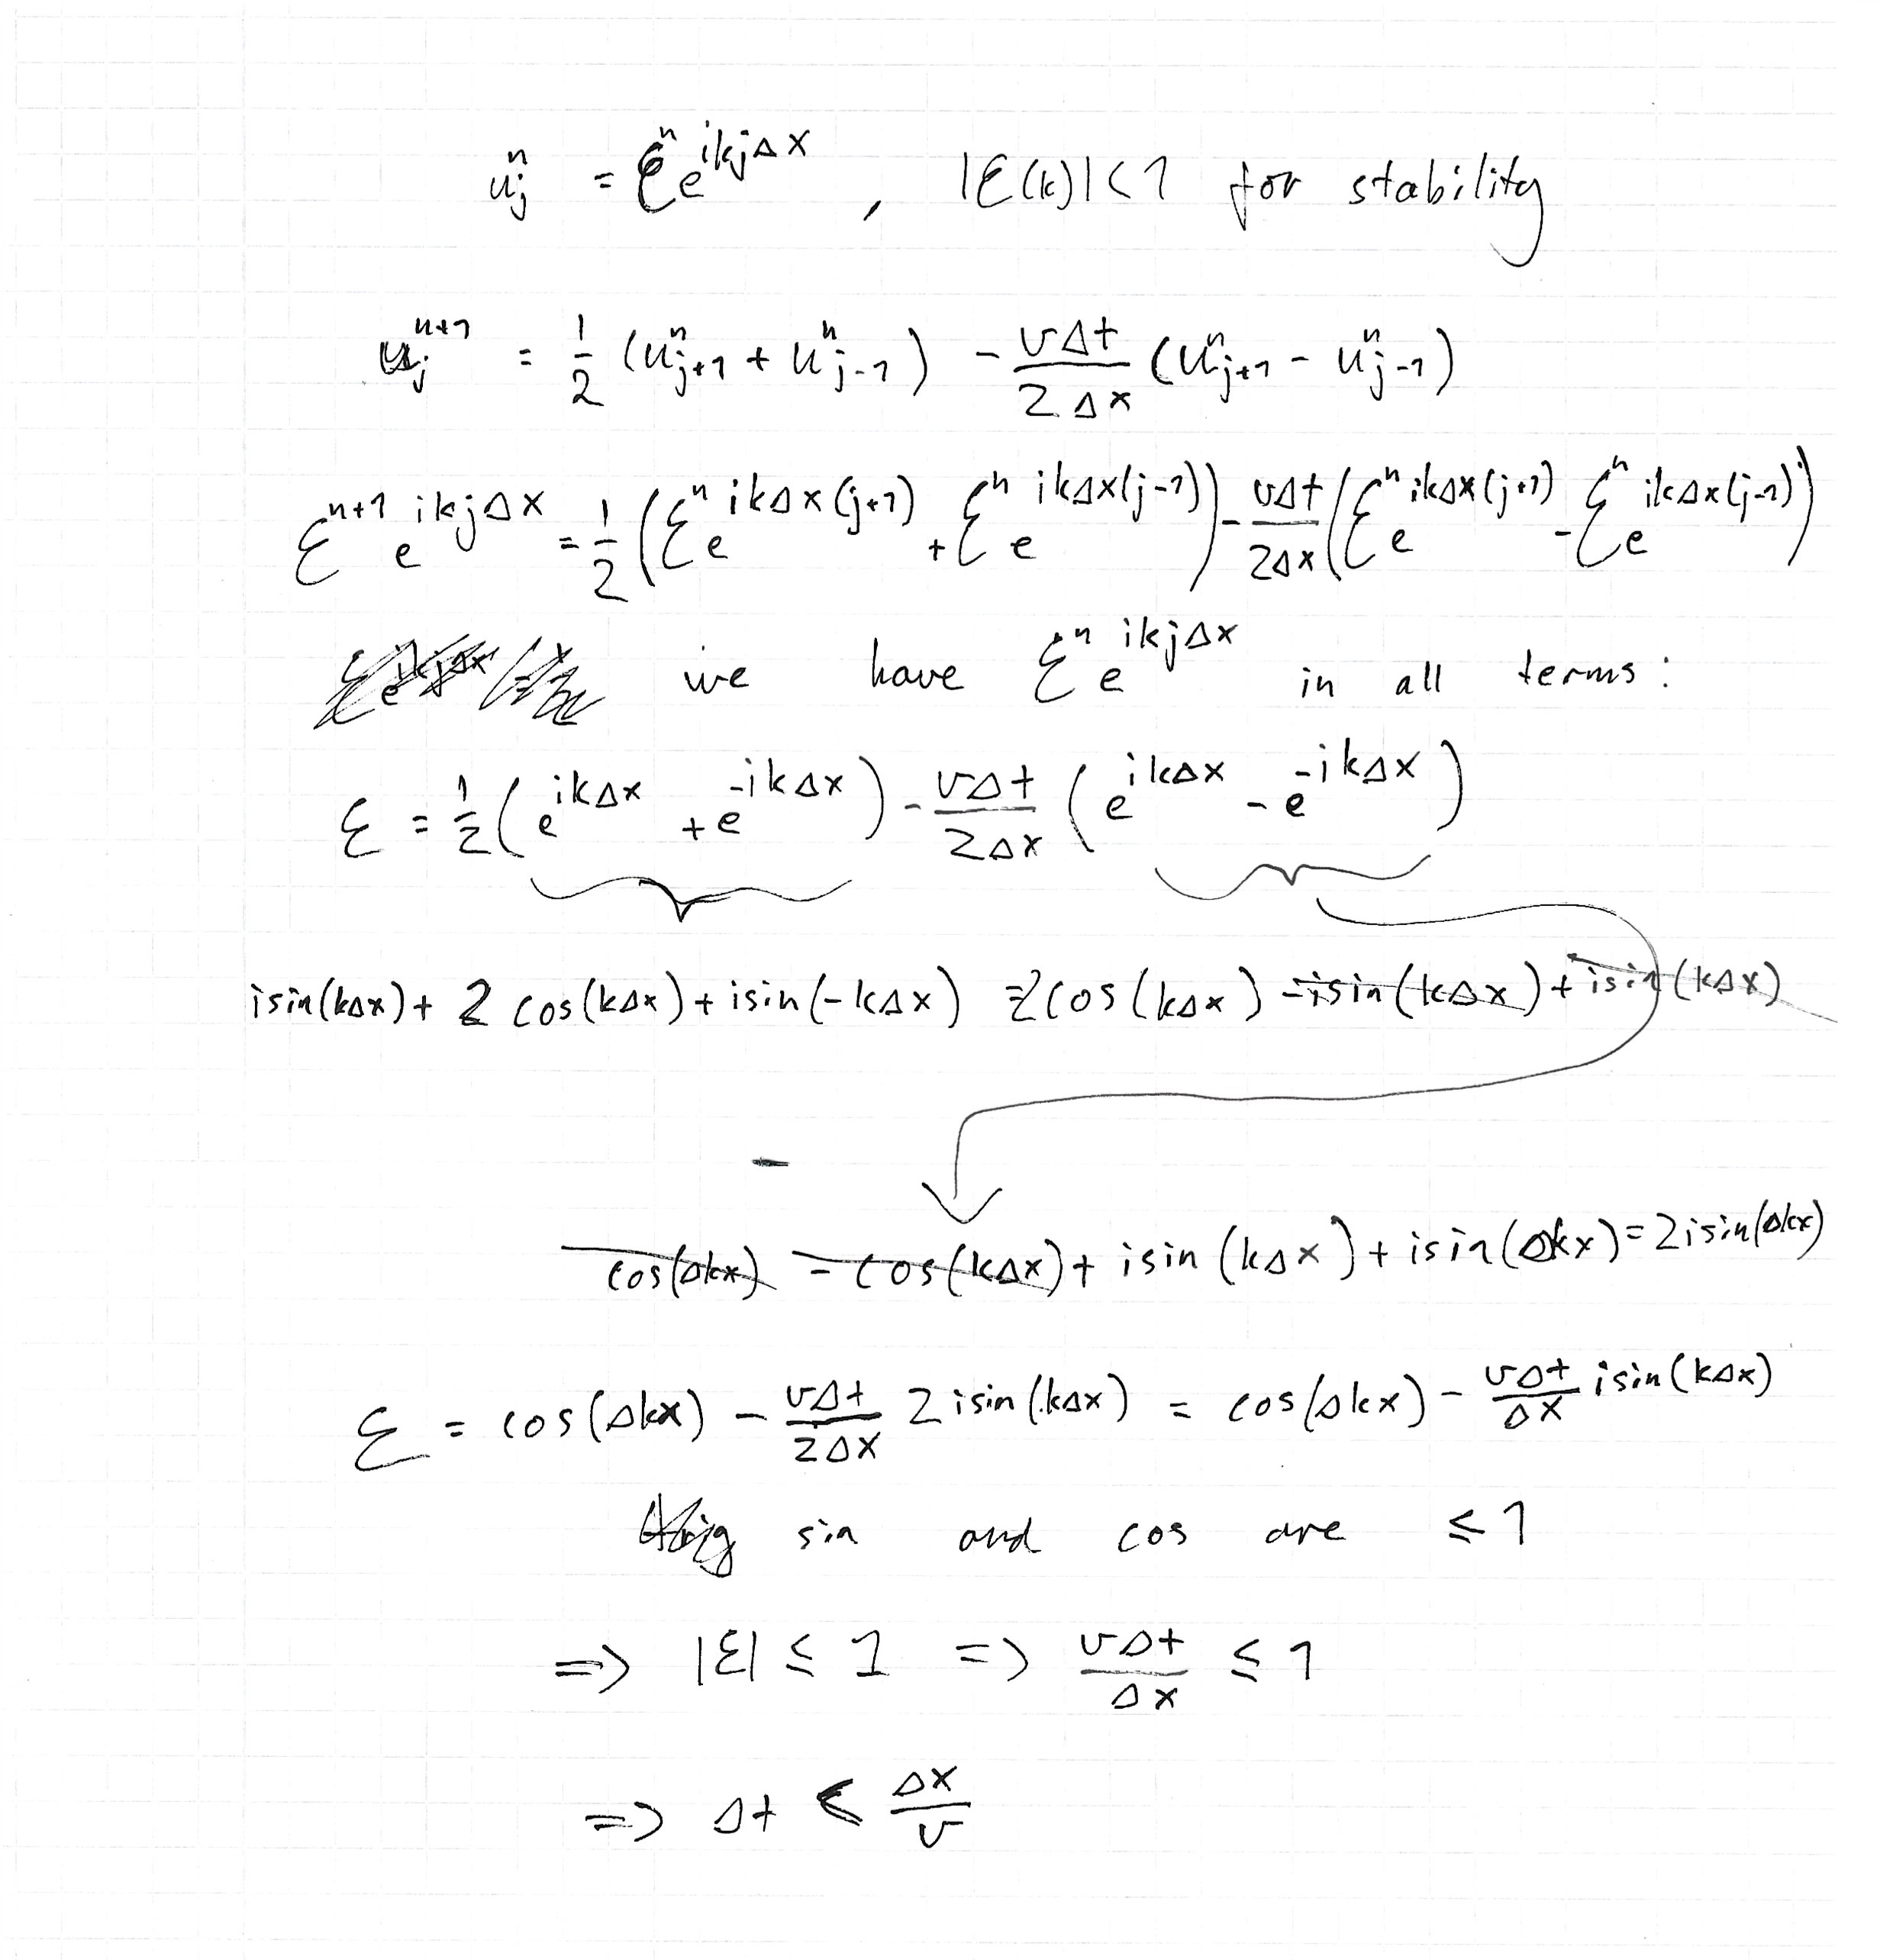 u_j^n = ξ^n e^{ikjΔx} , |ξ(k)| < 1 for stability
u_j^{n+1} = 1/2 (u_{j+1}^n + u_{j-1}^n) - vΔt/2Δx (u_{j+1}^n - u_{j-1}^n)
ξ^{n+1} e^{ikjΔx} = 1/2 (ξ^n e^{ikΔx(j+1)} + ξ^n e^{ikΔx(j-1)}) - vΔt/2Δx (ξ^n e^{ikΔx(j+1)} - ξ^n e^{ikΔx(j-1)})
we have ξ^n e^{ikjΔx} in all terms:
ξ = 1/2 (e^{ikΔx} + e^{-ikΔx}) - vΔt/2Δx (e^{ikΔx} - e^{-ikΔx})
isin(kΔx) + 2 cos(kΔx) + isin(-kΔx) = 2cos(kΔx) - isin(kΔx) + isin(kΔx)
cos(Δkx) - cos(kΔx) + isin(kΔx) + isin(Δkx) = 2isin(Δkx)
ξ = cos(Δkx) - vΔt/2Δx 2isin(kΔx) = cos(Δkx) - vΔt/Δx isin(kΔx)
sin and cos are ≤ 1
=> |ξ| ≤ 1 => vΔt/Δx ≤ 1
=> Δt ≤ Δx/v